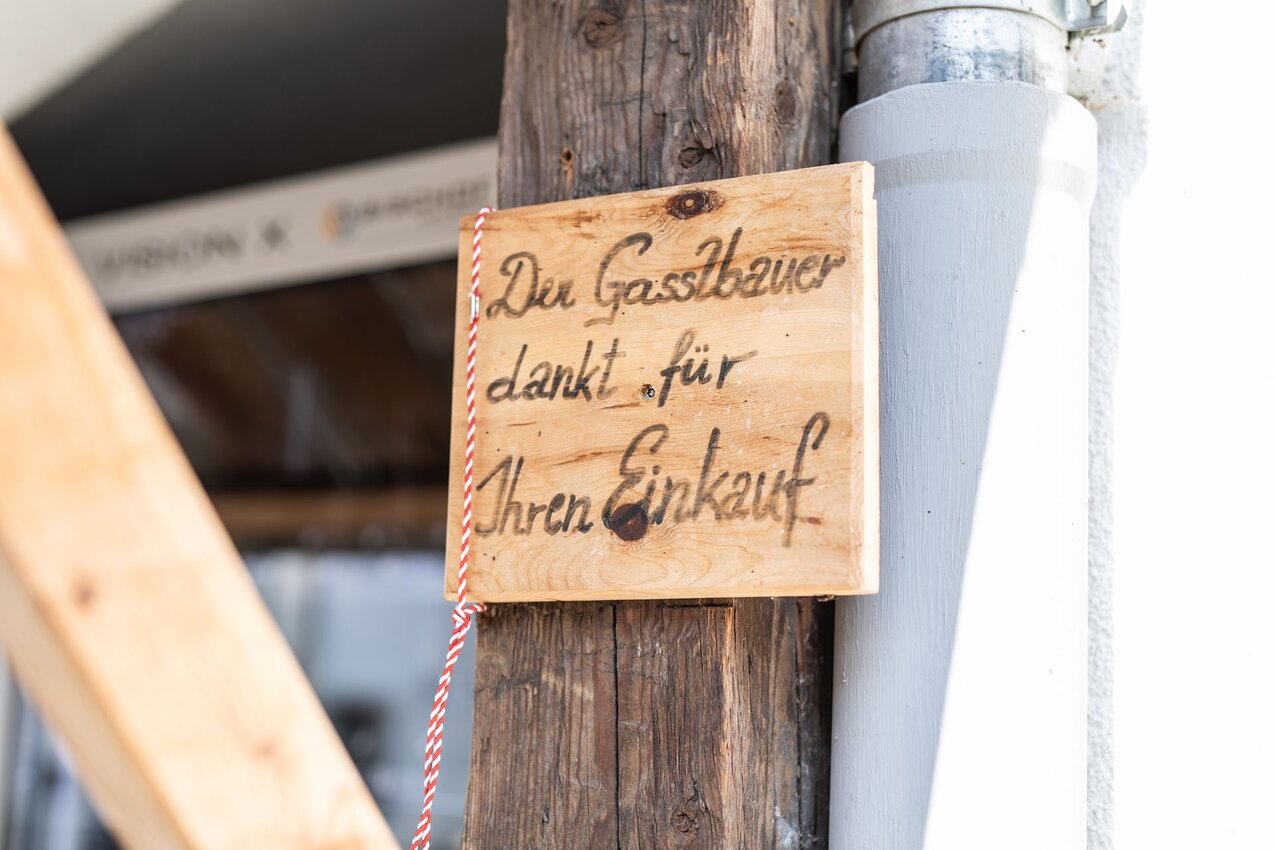 VISION X
Der Gasslbauer
dankt für
Ihren Einkauf